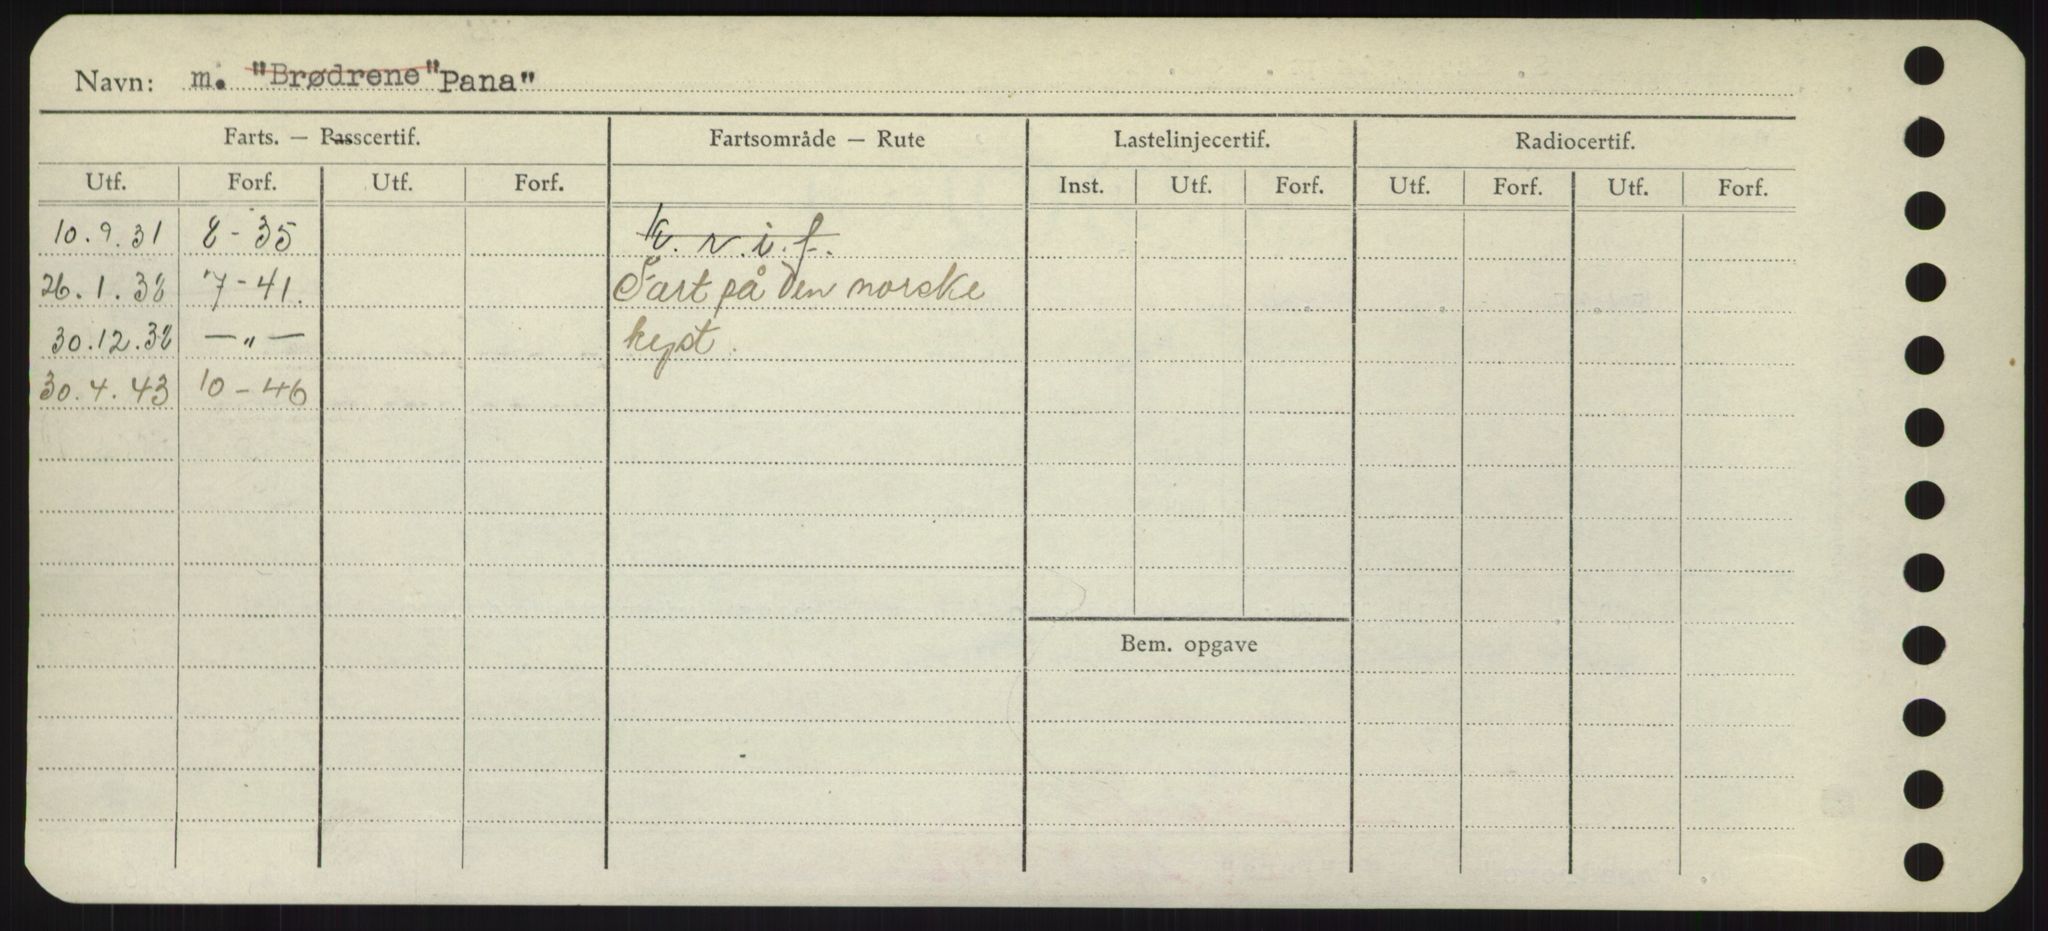 Navn: m. "Brødrene" Pana"
Farts. — Passcertif. Fartsområde — Rute Lastelinjecertif. Radiocertif.
Utf. Forf. Utf. Forf. Inst. Utf. Forf. Utf. Forf. Utf. Forf.
10.9.31 8-35 K.v.i.f.
26.1.38 7-41. Fart på den norske
30.12.38 —„— kyst.
30.4.43 10-46
Bem. opgave